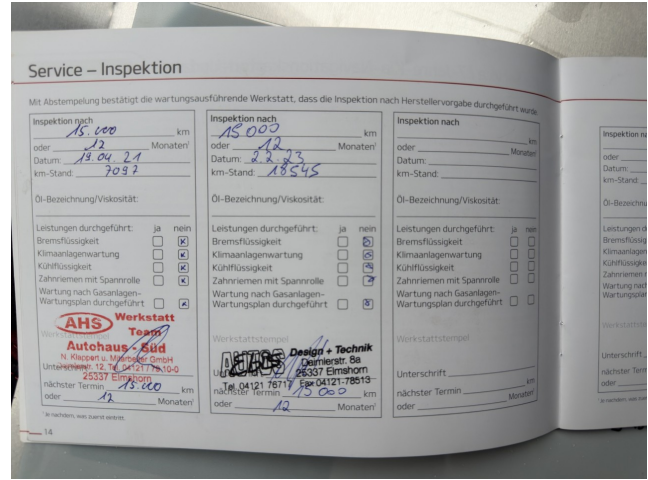 Service – Inspektion
Mit Abstempelung bestätigt die wartungsausführende Werkstatt, dass die Inspektion nach Herstellervorgabe durchgeführt wurde
Inspektion nach
15.000 km
oder 12 Monaten¹
Datum: 19.04.21
km-Stand: 7097
Öl-Bezeichnung/Viskosität:
Leistungen durchgeführt: ja nein
Bremsflüssigkeit
Klimaanlagenwartung
Kühlflüssigkeit
Zahnriemen mit Spannrolle
Wartung nach Gasanlagen-
Wartungsplan durchgeführt
Werkstattstempel
AHS Werkstatt
Team
Autohaus - Süd
N. Klappert u. Mitarbeiter GmbH
12, Tel. 04121 / 79 10-0
25337 Elmshorn
Unterschrift
nächster Termin 15.000 km
oder 12 Monaten¹
¹ Je nachdem, was zuerst eintritt.
14
Inspektion nach
15000 km
oder 12 Monaten¹
Datum: 2.2.23
km-Stand: 18545
Öl-Bezeichnung/Viskosität:
Leistungen durchgeführt: ja nein
Bremsflüssigkeit
Klimaanlagenwartung
Kühlflüssigkeit
Zahnriemen mit Spannrolle
Wartung nach Gasanlagen-
Wartungsplan durchgeführt
Werkstattstempel
Design + Technik
Daimlerstr. 8a
25337 Elmshorn
Tel. 04121 76717 Fax 04121-78513
nächster Termin 15000 km
oder 12 Monaten¹
Inspektion nach
km
oder Monaten¹
Datum:
km-Stand:
Öl-Bezeichnung/Viskosität:
Leistungen durchgeführt: ja nein
Bremsflüssigkeit
Klimaanlagenwartung
Kühlflüssigkeit
Zahnriemen mit Spannrolle
Wartung nach Gasanlagen-
Wartungsplan durchgeführt
Werkstattstempel
Unterschrift
nächster Termin km
oder Monaten¹
Inspektion na
oder
Datum:
km-Stand:
Öl-Bezeichn
Leistungen d
Bremsflüssig
Klimaanlagen
Kühlflüssigke
Zahnriemen m
Wartung nach
Wartungsplan
Werkstattst
Unterschrift
nächster Term
oder
¹ Je nachdem, was zue